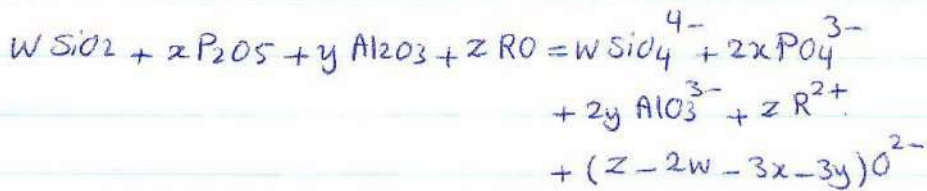 w SiO2 + x P2O5 + y Al2O3 + z RO = w SiO4^4- + 2x PO4^3-
+ 2y AlO3^3- + z R^2+
+ (z - 2w - 3x - 3y) O^2-